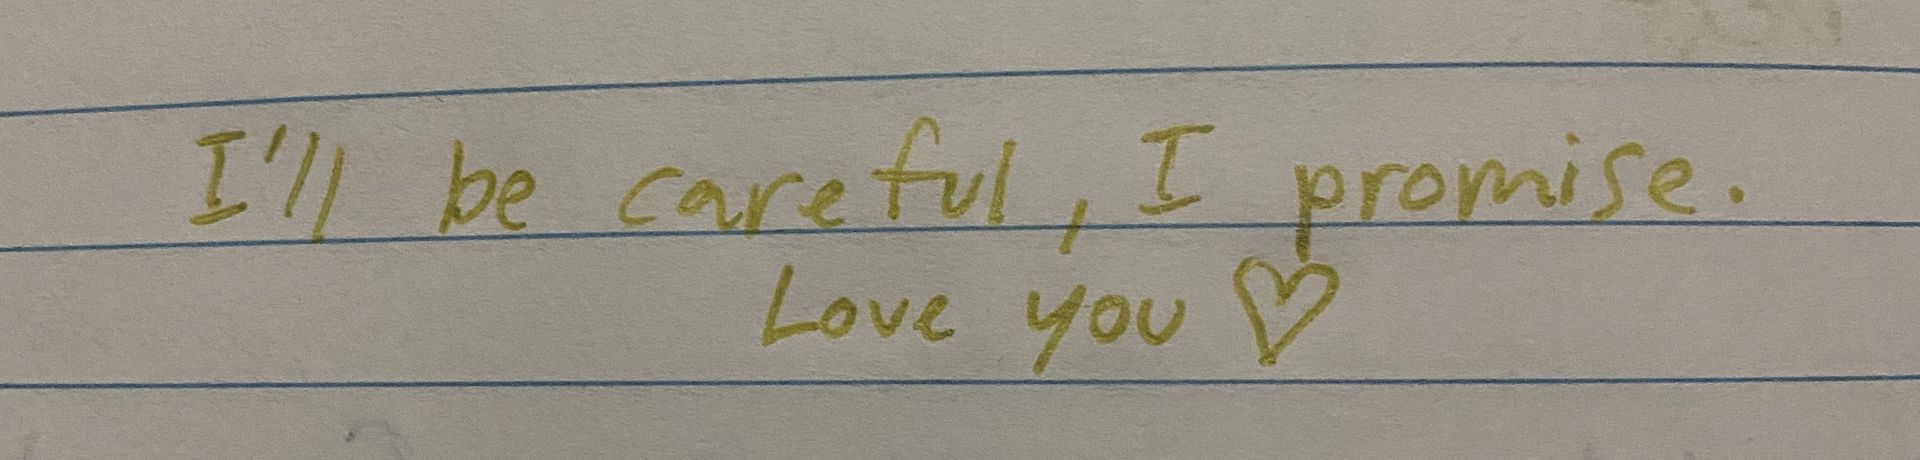 I'll be careful, I promise.
Love you ♡